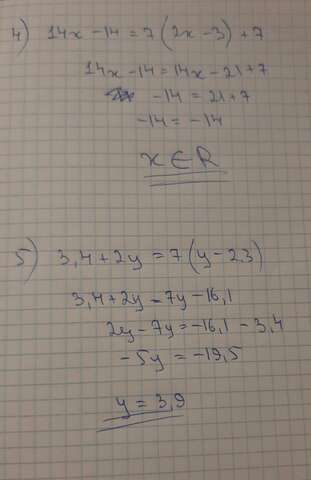 4) 14x - 14 = 7 (2x - 3) + 7
14x - 14 = 14x - 21 + 7
- 14 = 21 + 7
- 14 = - 14
x ∈ R
5) 3,4 + 2y = 7 (y - 2,3)
3,4 + 2y = 7y - 16,1
2y - 7y = - 16,1 - 3,4
- 5y = - 19,5
y = 3,9